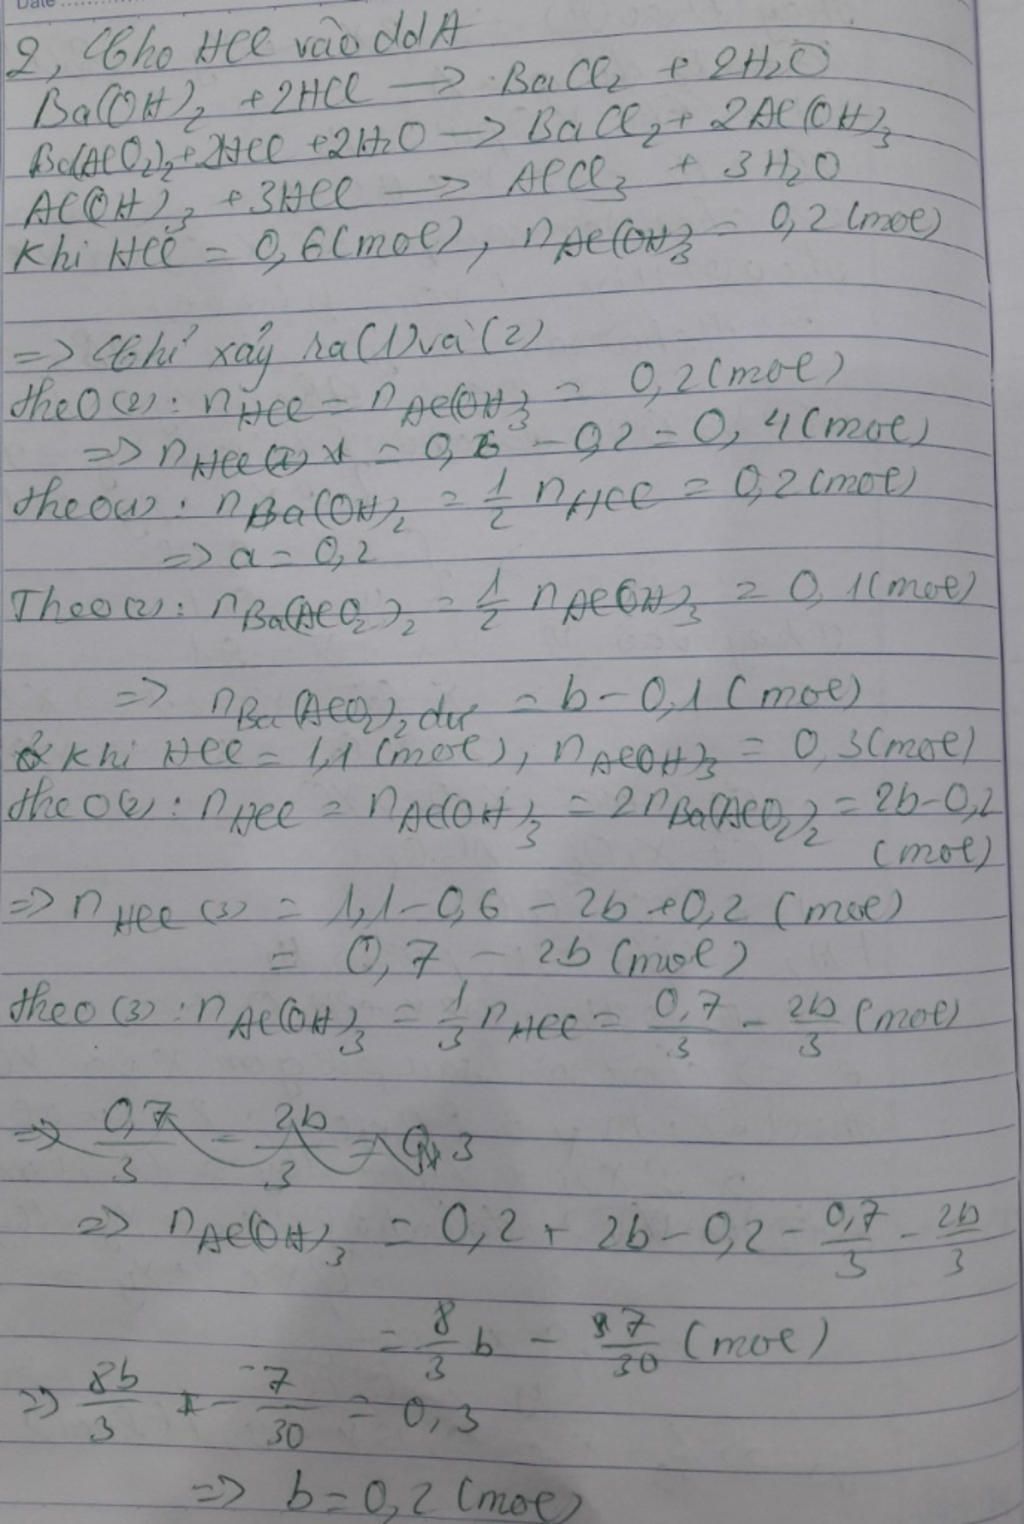 Date
2, Cho HCl vào ddA
Ba(OH)₂ + 2HCl → BaCl₂ + 2H₂O
Ba(AlO₂)₂ + 2HCl + 2H₂O → BaCl₂ + 2Al(OH)₃
Al(OH)₃ + 3HCl → AlCl₃ + 3H₂O
Khi HCl = 0,6(mol), nAl(OH)₃ = 0,2(mol)
=> Chỉ xảy ra (1) và (2)
theo (2): nHCl = nAl(OH)₃ = 0,2(mol)
=> nHCl(1) = 0,6 - 0,2 = 0,4(mol)
theo (1): nBa(OH)₂ = 1/2 nHCl = 0,2(mol)
=> a = 0,2
Theo (2): nBa(AlO₂)₂ = 1/2 nAl(OH)₃ = 0,1(mol)
=> nBa(AlO₂)₂ dư = b - 0,1(mol)
Khi HCl = 1,1(mol), nAl(OH)₃ = 0,3(mol)
theo (2): nHCl = nAl(OH)₃ = 2nBa(AlO₂)₂ = 2b-0,2
(mol)
=> nHCl (3) = 1,1-0,6 - 2b + 0,2 (mol)
= 0,7 - 2b (mol)
theo (3): nAl(OH)₃ = 1/3 nHCl = 0,7/3 - 2b/3 (mol)
=> 0,7/3 - 2b/3 = 0,3
=> nAl(OH)₃ = 0,2 + 2b - 0,2 - 0,7/3 - 2b/3
= 8/3 b - 7/30 (mol)
=> 8b/3 - 7/30 = 0,3
=> b = 0,2 (mol)